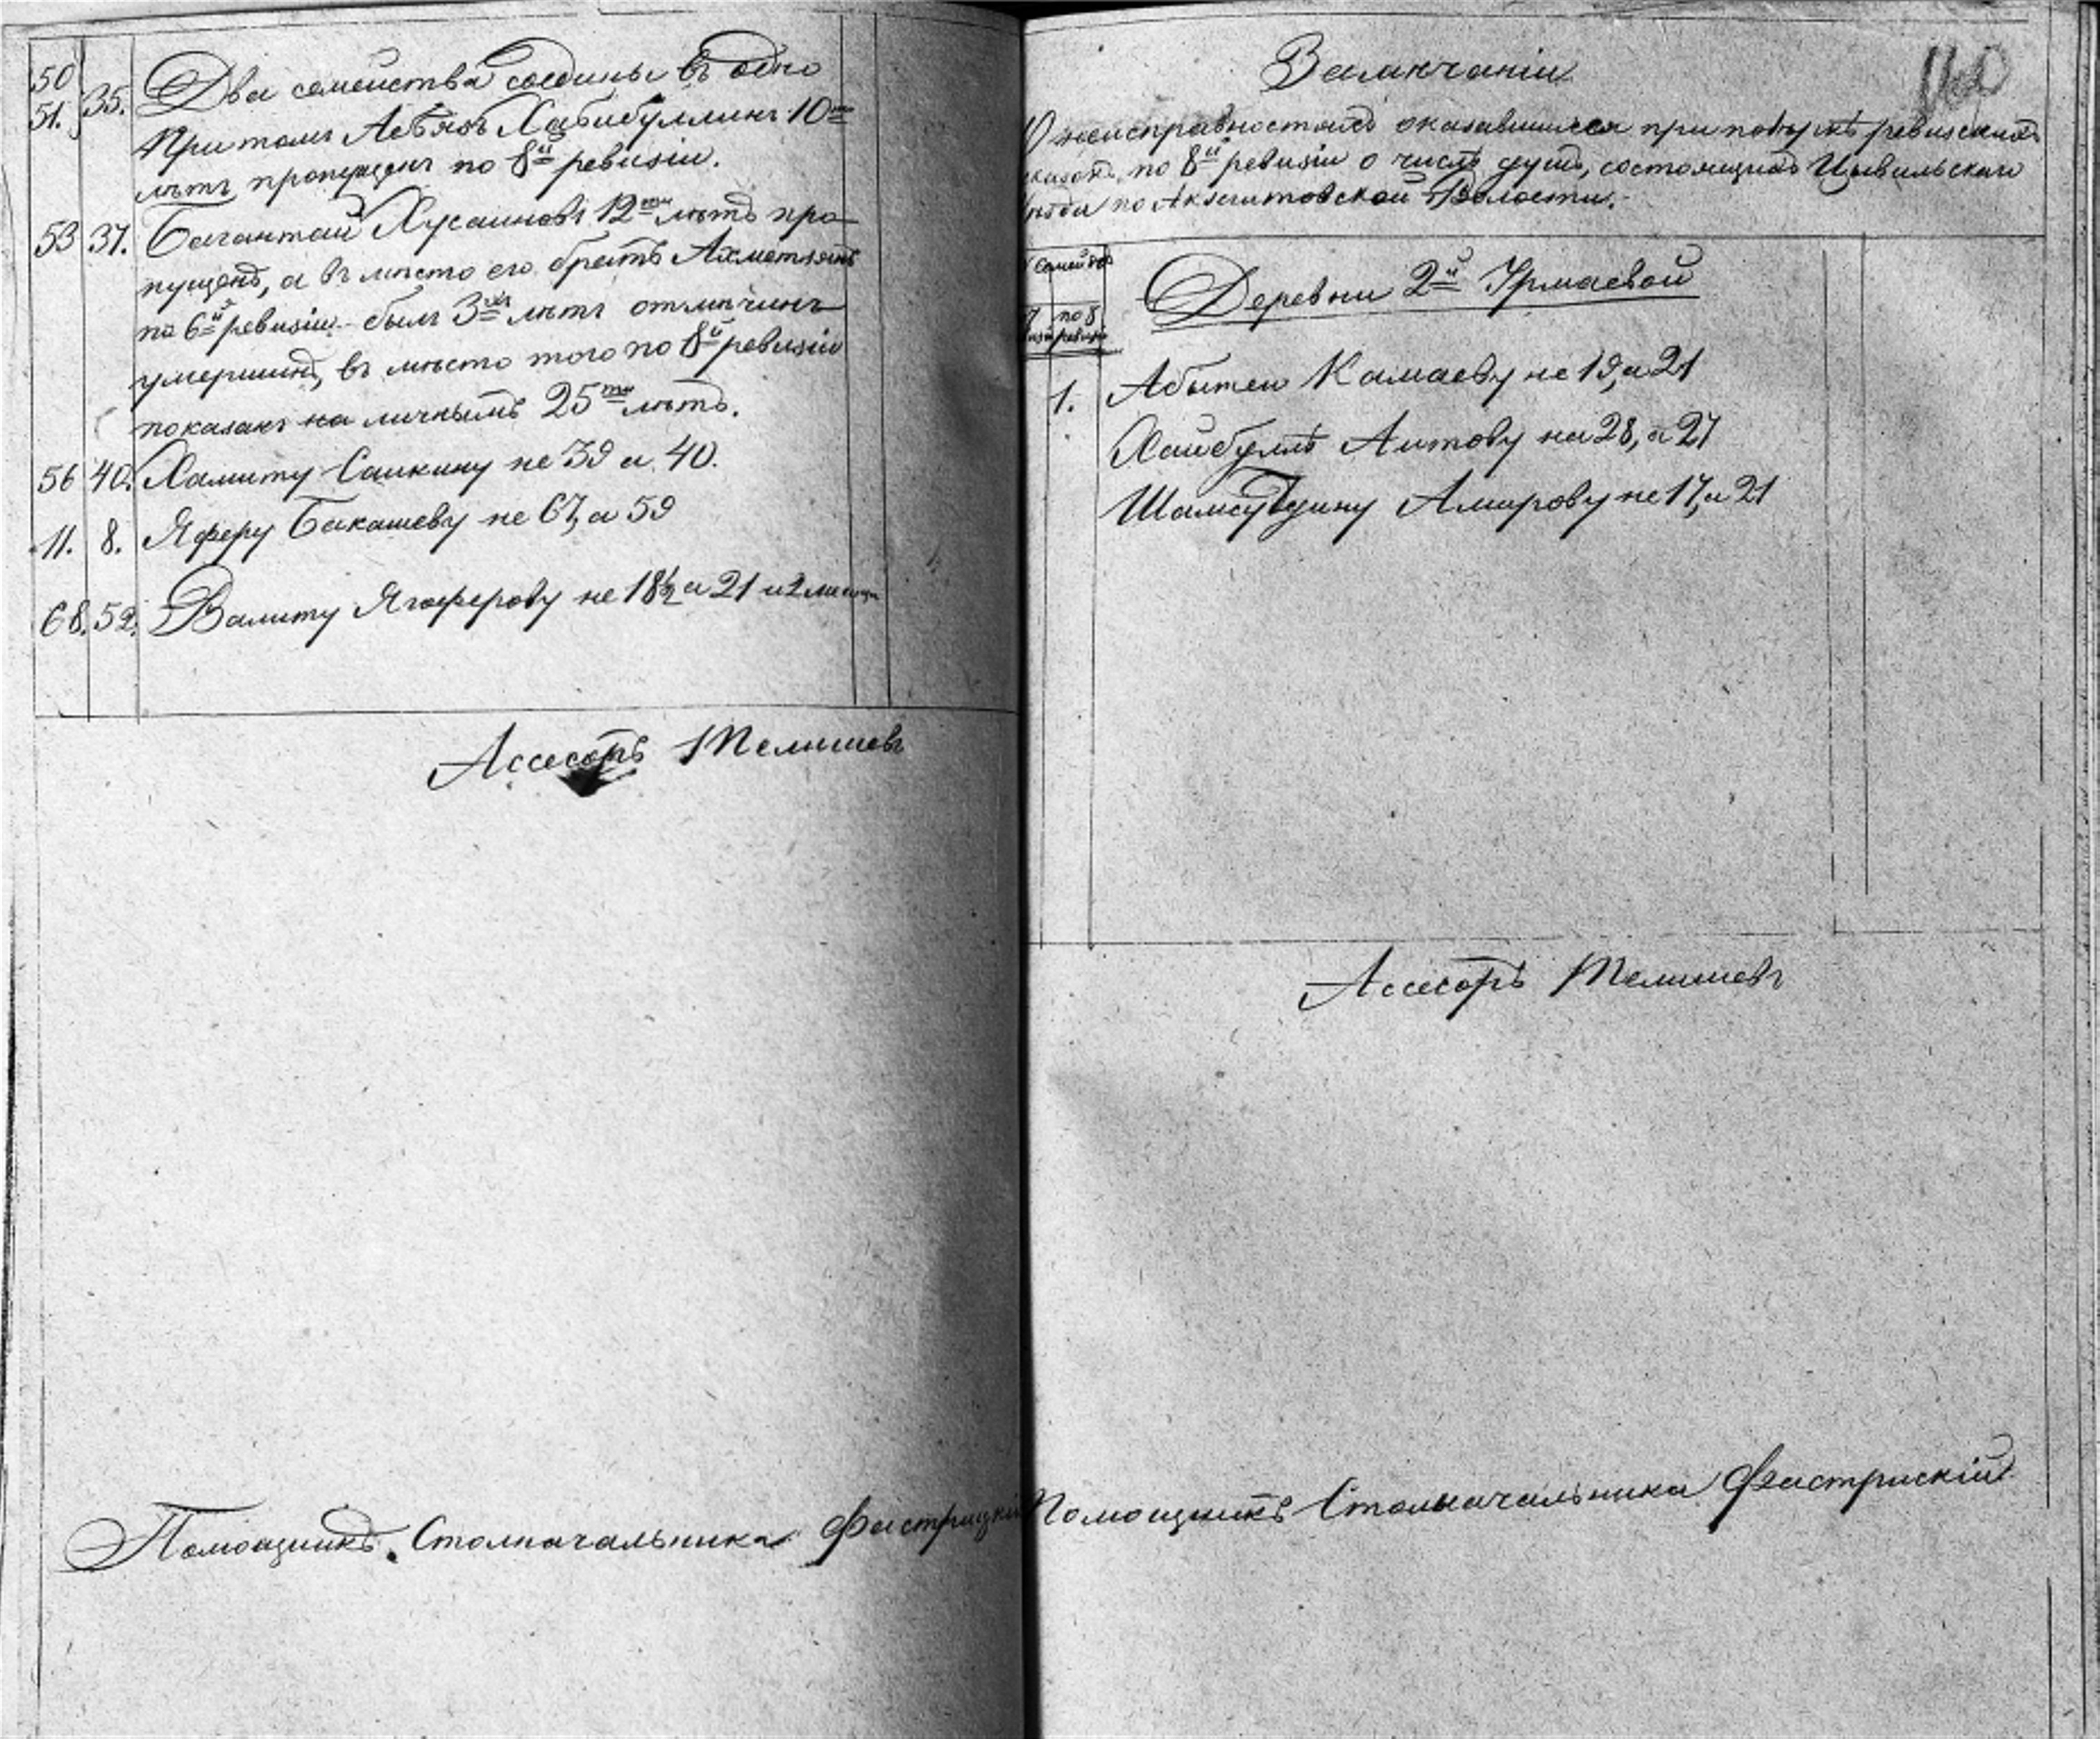 50 51. 35. Два семейства соедины въ одно
Притомъ Аетякъ Хабибуллинъ 10ти
лѣтъ пропущенъ по 8й ревизіи.
53 37. Багантай Хусаиновъ 12ти лѣтъ про-
пущенъ, а въ мѣсто его братъ Ахметзянъ
по 6й ревизіи былъ 3хъ лѣтъ отмѣчинъ
умершимъ, въ мѣсто того по 8й ревизіи
показанъ на личнымъ 25ти лѣтъ.
56 40. Хамиту Саикину не 39 а 40.
11. 8. Яферу Бакашеву не 67, а 59
68. 52. Валиту Ягоферову не 18½ а 21 и 2 месяца
Ассесоръ Телишевъ
Помощникъ Столначальника Фастрицкій
Замѣчаніи
О неисправностяхъ оказавшихся при повѣркѣ ревизскихъ
сказокъ, по 8й ревизіи о числѣ душъ, состоящихъ Цывильскаго
уѣзда по Акзегитовской Волости.
№ Семействъ
7 по 8
ревизіи
Деревни 2й Урмаевой
1. Абытею Камаеву не 19, а 21
Хаибуллѣ Аитову на 28, а 27
Шамсутдину Амирову не 17, а 21
Ассесоръ Телишевъ
Помощникъ Столначальника Фастрискій